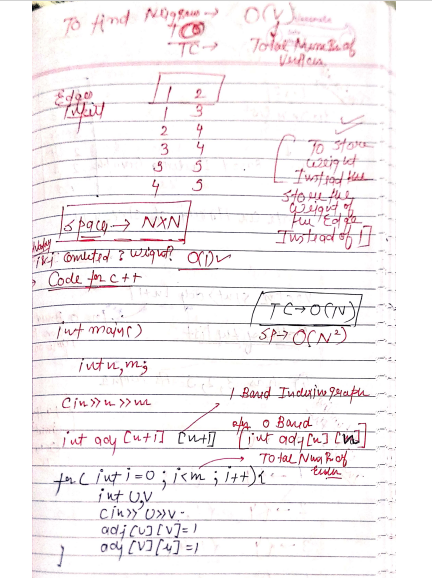 To find → O(V)
TC → Total Number of
Vertices
Edge 1 2
Input 1 3
2 4
3 4
3 5
4 5
To store
weight
Instead the
Store the
weight of
the Edge
Instead of 1]
Space → N×N
connected ? weight? O(1)
→ Code for c++
TC → O(N)
SP → O(N²)
int main()
int n, m;
Cin >> n >> m
1 Based Indexing graph
int adj [n+1] [n+1]
0 Based
[int adj[n] [n]]
Total Number of
for ( int i = 0 ; i < m ; i++) {
int U, V
Cin >> U >> V
adj [U] [V] = 1
adj [V] [U] = 1
}